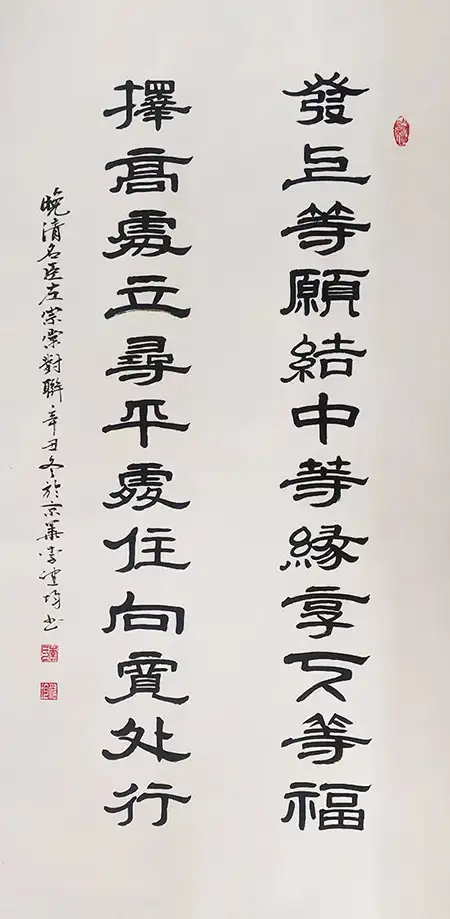 發上等願結中等緣享下等福
擇高處立尋平處住向寬處行
晚清名臣左宗棠對聯辛丑冬於京華李均书